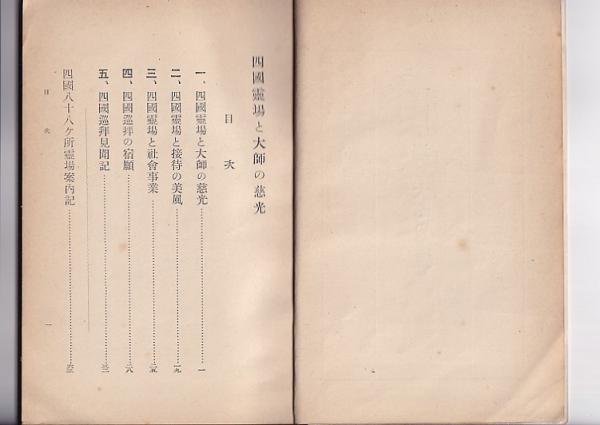 四國靈場と大師の慈光
目次
一、四國靈場と大師の慈光…………一
二、四國靈場と接待の美風…………一九
三、四國靈場と社會事業…………二五
四、四國巡拜の宿願…………二八
五、四國巡拜見聞記…………三二
四國八十八ケ所靈場案內記…………
目次
一